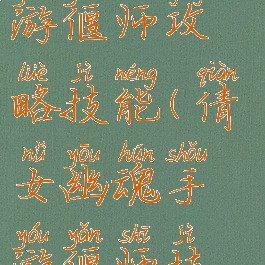 游偃师攻
lüè jì néng qiàn
略技能(倩
nǚ yōu hún shǒu
女幽魂手
yóu yǎn shī jì
游偃师技